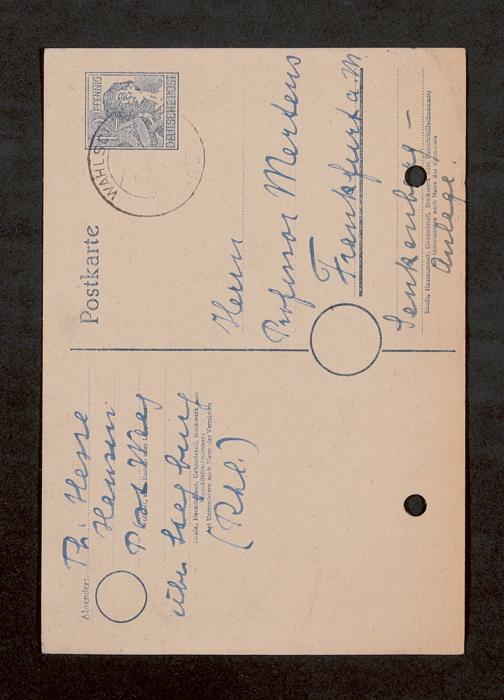 Postkarte
PFENNIG
DEUTSCHE POST
WAHLSC
Herrn
Professor Mertens
Frankfurt a. M
Senkenberg-
Anlage.
Straße, Hausnummer, Gebäudeteil, Stockwerk oder Postschließfachnummer;
bei Untermietern auch Name des Vermieters
Absender: Th. Hesse
Post Weg
über Siegburg
(Rhl.)
Straße, Hausnummer, Gebäudeteil, Stockwerk oder
Postschließfachnummer;
bei Untermietern auch Name des Vermieters